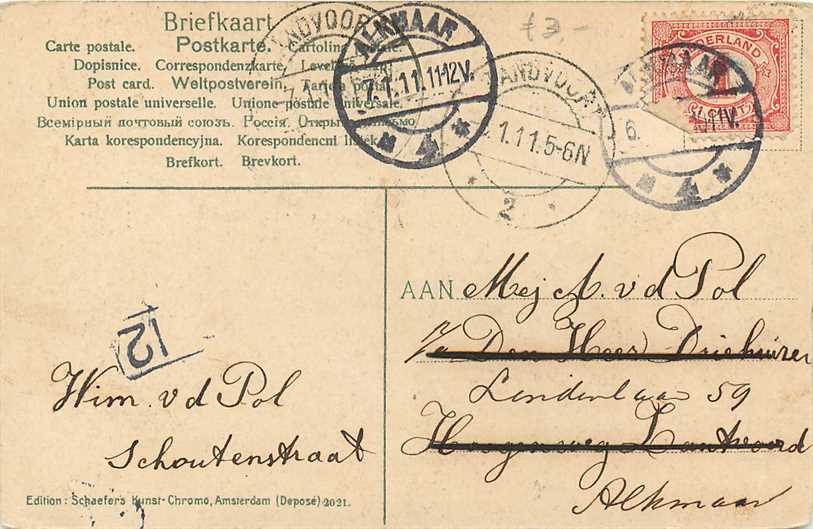 Briefkaart
Carte postale. Postkarte. Cartolina postale.
Dopisnice. Correspondenzkarte. Levelező
Post card. Weltpostverein. Tarjeta postal.
Union postale universelle. Unione postale universale.
Всемірный почтовый союзъ. Россія. Открытое письмо
Karta korespondencyjna. Korespondencni listek.
Brefkort. Brevkort.
£3,-
ANDVOOR
ALKMAAR
7.1.11.11-12V.
4
ZANDVOORT
.1.11.5-6N
2
NEDERLAND
1
CENT
ALKMAAR
6.
11V.
4
AAN Mej A. v d Pol
p/a Den Heer Driehuizen
Lindenlaan 59
Hoogenweg Zantvoord
Alkmaar
12
Wim. v d Pol
Schoutenstraat
Edition: Schaefer's Kunst-Chromo, Amsterdam (Deposé) 2021.